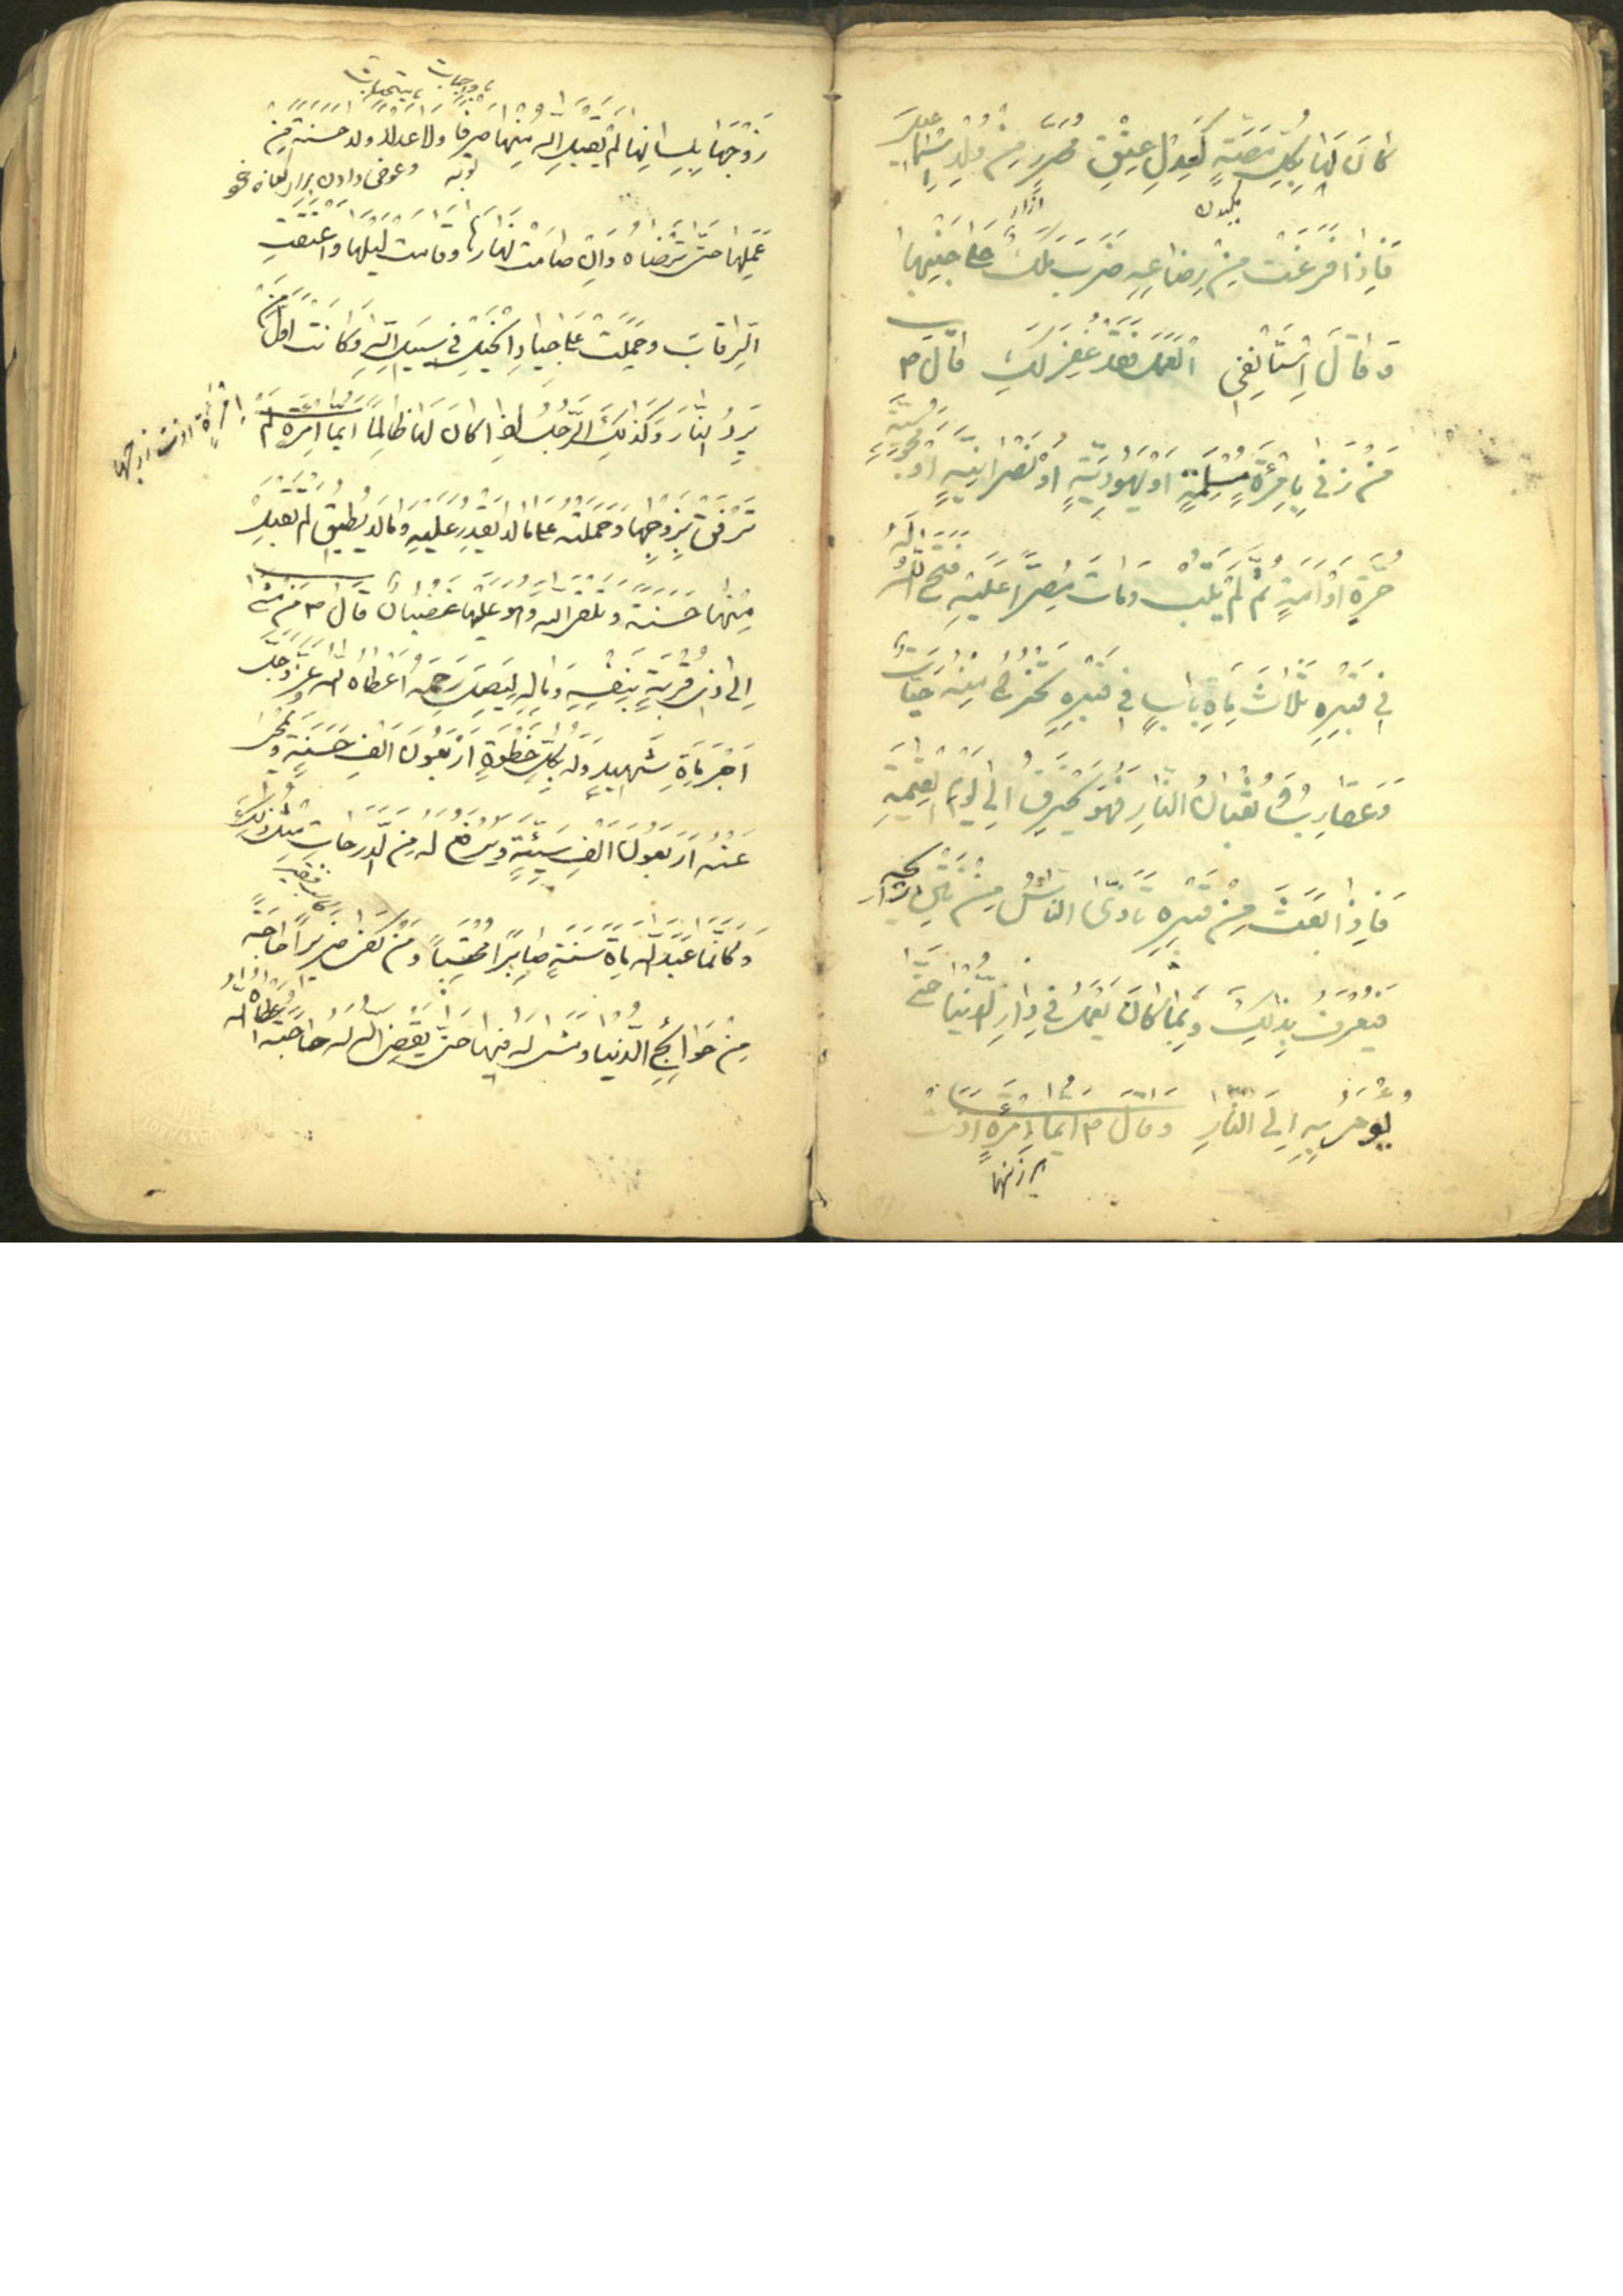 كَانَ لَهَا بِكُلِّ مَصَّةٍ كَعِدْلِ عِتْقِ مُحَرَّرٍ مِنْ وُلْدِ اِسْمَاعِيلَ
مكيدن
فَاِذَا فَرَغَتْ مِنْ رِضَاعِهِ ضَرَبَ مَلَكٌ عَلَى جَنْبِهَا
وَقَالَ اِسْتَأْنِفِي الْعَمَلَ فَقَدْ غُفِرَ لَكِ قَالَ ص
مَنْ زَنَى بِامْرَأَةٍ مُسْلِمَةٍ اَوْ يَهُودِيَّةٍ اَوْ نَصْرَانِيَّةٍ اَوْ مَجُوسِيَّةٍ
حُرَّةٍ اَوْ اَمَةٍ ثُمَّ لَمْ يَتُبْ وَمَاتَ مُصِرًّا عَلَيْهِ فَتَحَ اللّٰهُ لَهُ
فِي قَبْرِهِ ثَلَاثَ مِاةِ بَابٍ فِي قَبْرِهِ تَخْرُجُ مِنْهُ حَيَّاتٌ
وَعَقَارِبُ وَثُعْبَانُ النَّارِ فَهُوَ يَحْتَرِقُ اِلَى يَوْمِ الْقِيٰمَةِ
فَاِذَا بُعِثَ مِنْ قَبْرِهِ تَاَذَّى النَّاسُ مِنْ نَتْنِ رِيحِهِ
فَيُعْرَفُ بِذَلِكَ وَبِمَا كَانَ يَعْمَلُ فِي دَارِ الدُّنْيَا حَتَّى
يُؤْمَرَ بِهِ اِلَى النَّارِ وَقَالَ ص اَيُّمَا امْرَأَةٍ اٰذَتْ
زَوْجَهَا بِلِسَانِهَا لَمْ يَقْبَلِ اللّٰهُ مِنْهَا صَرْفًا وَلَا عَدْلًا وَلَا حَسَنَةً مِنْ
توبه
عَمَلِهَا حَتَّى تُرْضَاهُ وَاِنْ صَامَتْ نَهَارَهَا وَقَامَتْ لَيْلَهَا وَاَعْتَقَتِ
الرِّقَابَ وَحَمَلَتْ عَلَى جِيَادِ الْخَيْلِ فِي سَبِيلِ اللّٰهِ وَكَانَتْ اَوَّلَ مَنْ
يَرِدُ النَّارَ وَكَذَلِكَ الرَّجُلُ اِذَا كَانَ لَهَا ظَالِمًا اَيُّمَا امْرَأَةٍ لَمْ
تَرْفُقْ بِزَوْجِهَا وَحَمَلَتْهُ عَلَى مَا لَا يَقْدِرُ عَلَيْهِ وَمَا لَا يُطِيقُ لَمْ يَقْبَلْ
مِنْهَا حَسَنَةً وَتَلْقَى اللّٰهَ وَهُوَ عَلَيْهَا غَضْبَانُ قَالَ ص مَنْ مَشَى
اِلَى ذِي قُرْبَةٍ بِنَفْسِهِ وَمَالِهِ لِيَصِلَ رَحِمَهُ اَعْطَاهُ اللّٰهُ عَزَّ وَجَلَّ
اَجْرَ مِاةِ شَهِيدٍ وَلَهُ بِكُلِّ خُطْوَةٍ اَرْبَعُونَ اَلْفَ حَسَنَةٍ وَيَمْحُو
عَنْهُ اَرْبَعُونَ اَلْفَ سَيِّئَةٍ وَيَرْفَعُ لَهُ مِنَ الدَّرَجَاتِ مِثْلَ ذَلِكَ
وَكَاَنَّمَا عَبَدَ اللّٰهَ مِاةَ سَنَةٍ صَابِرًا مُحْتَسِبًا وَمَنْ كَفَى ضَرِيرًا حَاجَةً
مِنْ حَوَائِجِ الدُّنْيَا وَمَشَى لَهُ فِيهَا حَتَّى يَقْضِيَ اللّٰهُ لَهُ حَاجَتَهُ اَعْطَاهُ اللّٰهُ